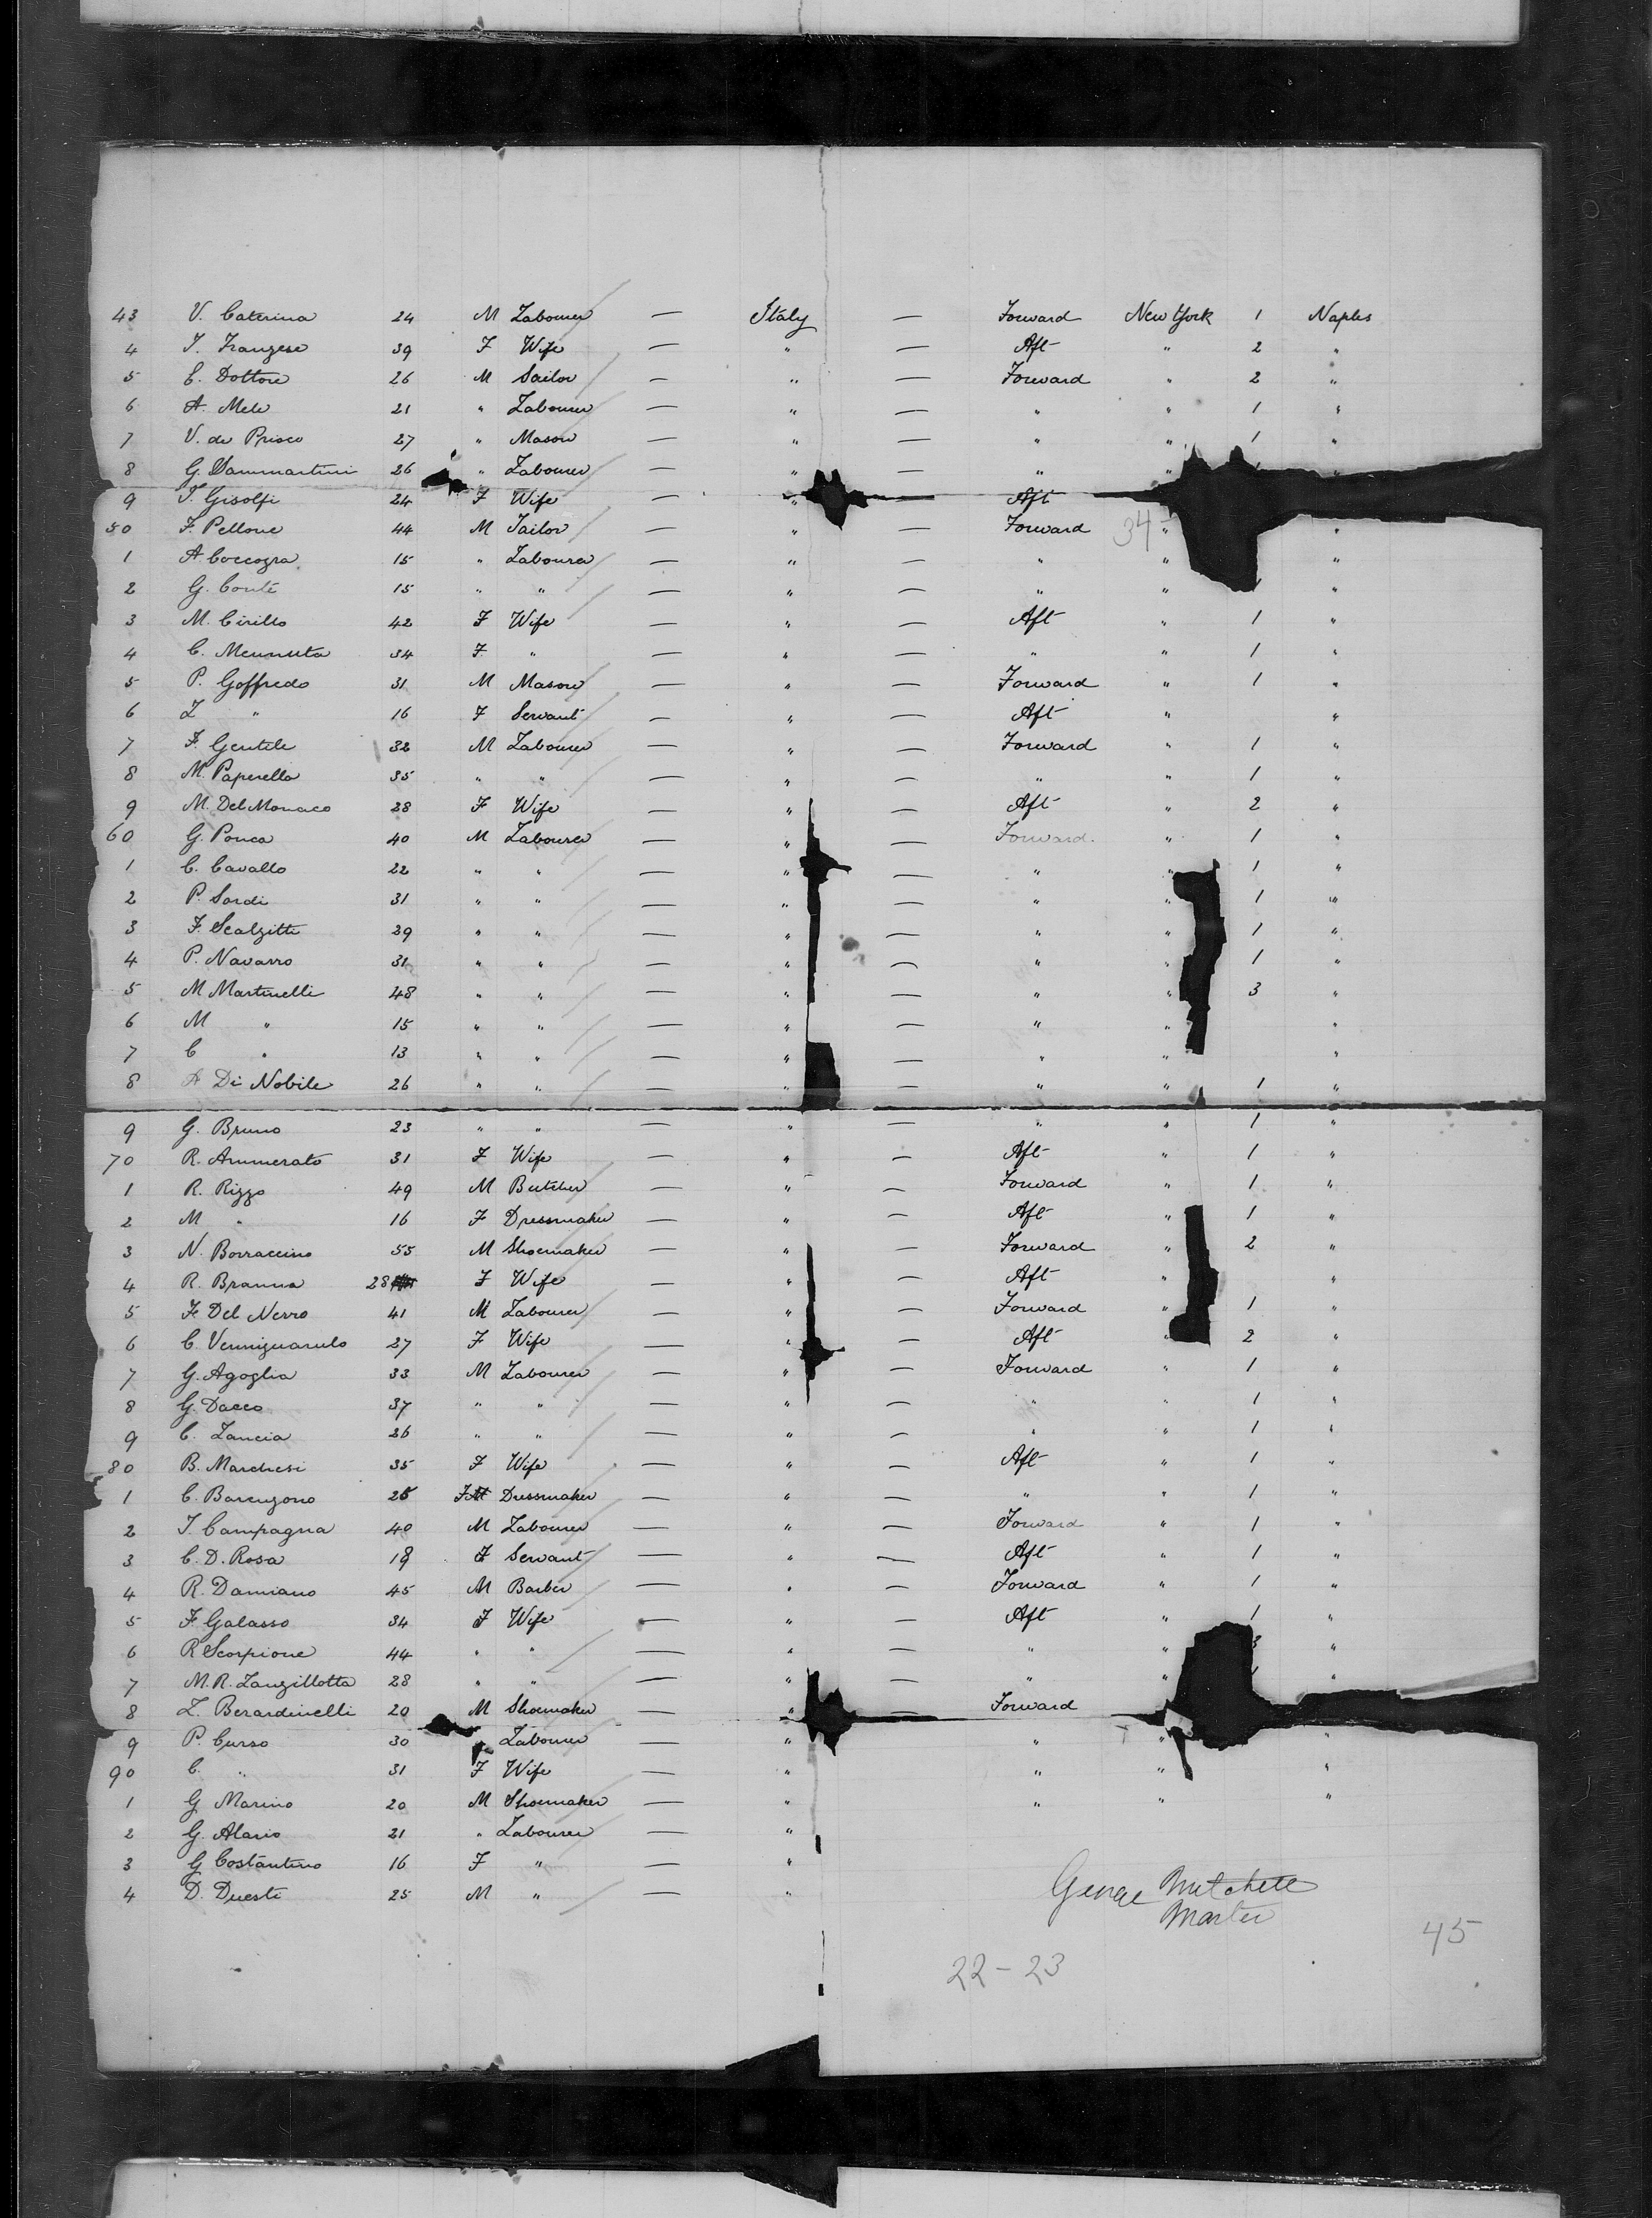 43 V. Caterina 24 M Labourer — Italy — Forward New York 1 Naples
4 T. Franzese 39 F Wife — " — Aft " 2 "
5 C. Dottore 26 M Sailor — " — Forward " 2 "
6 A. Mele 21 " Labourer — " — " " 1 "
7 V. de Prisco 27 " Mason — " — " " 1 "
8 G. Dammartini 26 " Labourer — " — " " "
9 T. Gisolfi 24 F Wife — " — Aft
50 F. Pellone 44 M Tailor — " — Forward 34 " "
1 A Coccozza 15 " Labourer — " — " " "
2 G. Conte 15 " " — " — " " 1 "
3 M. Cirillo 42 F Wife — " — Aft " 1 "
4 C. Mennuta 34 F " — " — " " 1 "
5 P. Goffredo 31 M Mason — " — Forward " 1 "
6 L " 16 F Servant — " — Aft " "
7 F. Gentile 32 M Labourer — " — Forward " 1 "
8 M. Paperella 35 " " — " — " " 1 "
9 M. Del Monaco 28 F Wife — " — Aft " 2 "
60 G. Ponca 40 M Labourer — " — Forward. " 1 "
1 C. Cavallo 22 " " — " — " " 1 "
2 P. Sordi 31 " " — " — " " 1 "
3 F. Scalzitti 29 " " — " — " " 1 "
4 P. Navarro 31 " " — " — " " 1 "
5 M Martinelli 48 " " — " — " " 3 "
6 M " 15 " " — " — " " "
7 C " 13 " " — " — " " "
8 A Di Nobile 26 " " — " — " " 1 "
9 G. Bruno 23 " " — " — " " 1 "
70 R. Ammerato 31 F Wife — " — Aft " 1 "
1 R. Rizzo 49 M Butcher — " — Forward " 1 "
2 M " 16 F Dressmaker — " — Aft " 1 "
3 N. Borraccino 55 M Shoemaker — " — Forward " 2 "
4 R. Branna 28 F Wife — " — Aft " "
5 F. Del Nerro 41 M Labourer — " — Forward " 1 "
6 C. 27 F Wife — " — Aft " 2 "
7 G. Agoglia 33 M Labourer — " — Forward " 1 "
8 G. Dacco 37 " " — " — " " 1 "
9 C. Lancia 26 " " — " — " " 1 "
80 B. Marchesi 35 F Wife — " — Aft " 1 "
1 C. 25 F Dressmaker — " — " " 1 "
2 T. Campagna 40 M Labourer — " — Forward " 1 "
3 C. D. Rosa 18 F Servant — " — Aft " 1 "
4 R. Damiano 45 M Barber — " — Forward " 1 "
5 F. Galasso 34 F Wife — " — Aft " 1 "
6 R Scorpione 44 " " — " — " " 3 "
7 M. R. Lanzillotta 28 " " — " — " " "
8 L. Berardinelli 20 M Shoemaker — " — Forward
9 P. Curso 30 " Labourer — " " " "
90 C. " 31 F Wife — " " " "
1 G. Marino 20 M Shoemaker — " " " "
2 G. Alario 21 " Labourer — "
3 G Costantino 16 F " — "
4 D. Duesti 25 M " — "
George Mutchell
Master
45
22-23